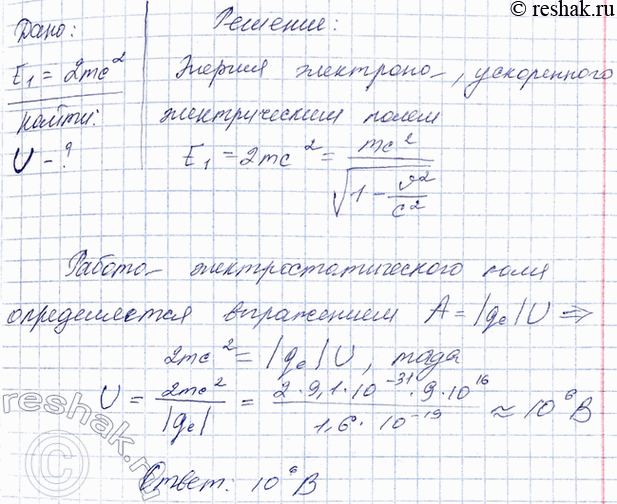 © reshak.ru
Дано:
E₁ = 2mc²
Найти:
U - ?
Решение:
Энергия электрона, ускоренного
электрическим полем
E₁ = 2mc² = mc² / √(1 - v²/c²)
Работа электростатического поля
определяется выражением A = |qₑ|U ⇒
2mc² = |qₑ|U, тогда
U = 2mc² / |qₑ| = 2·9,1·10⁻³¹·9·10¹⁶ / 1,6·10⁻¹⁹ ≈ 10⁶ В
Ответ: 10⁶ В
reshak.ru
©